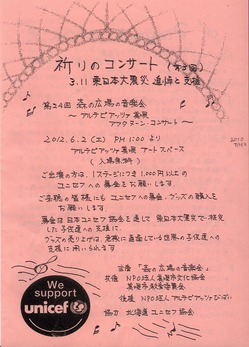 祈りのコンサート
3.11 東日本大震災 追悼と支援
第24回 森の広場の音楽会
〜アルテピアッツァ美唄
アフタヌーン・コンサート〜
2012.6.2(土) PM 1:00 より
アルテピアッツァ美唄 アートスペース
(入場無料)
ご出演の方は、1ステージにつき1,000円以上の
ユニセフへの募金をお願いします。
ご来聴の皆様にも ユニセフへの募金、グッズの購入を
お願いします。
募金は日本ユニセフ協会を通して 東日本大震災で被災
した子供達への支援に、
グッズの売り上げは、危機に直面している世界の子供達への
支援に用いられます
主催 「森の広場の音楽会」
共催 NPO法人美唄市文化協会
後援 NPO法人 アルテピアッツァびばい
協力 北海道ユニセフ協会
We
support
unicef